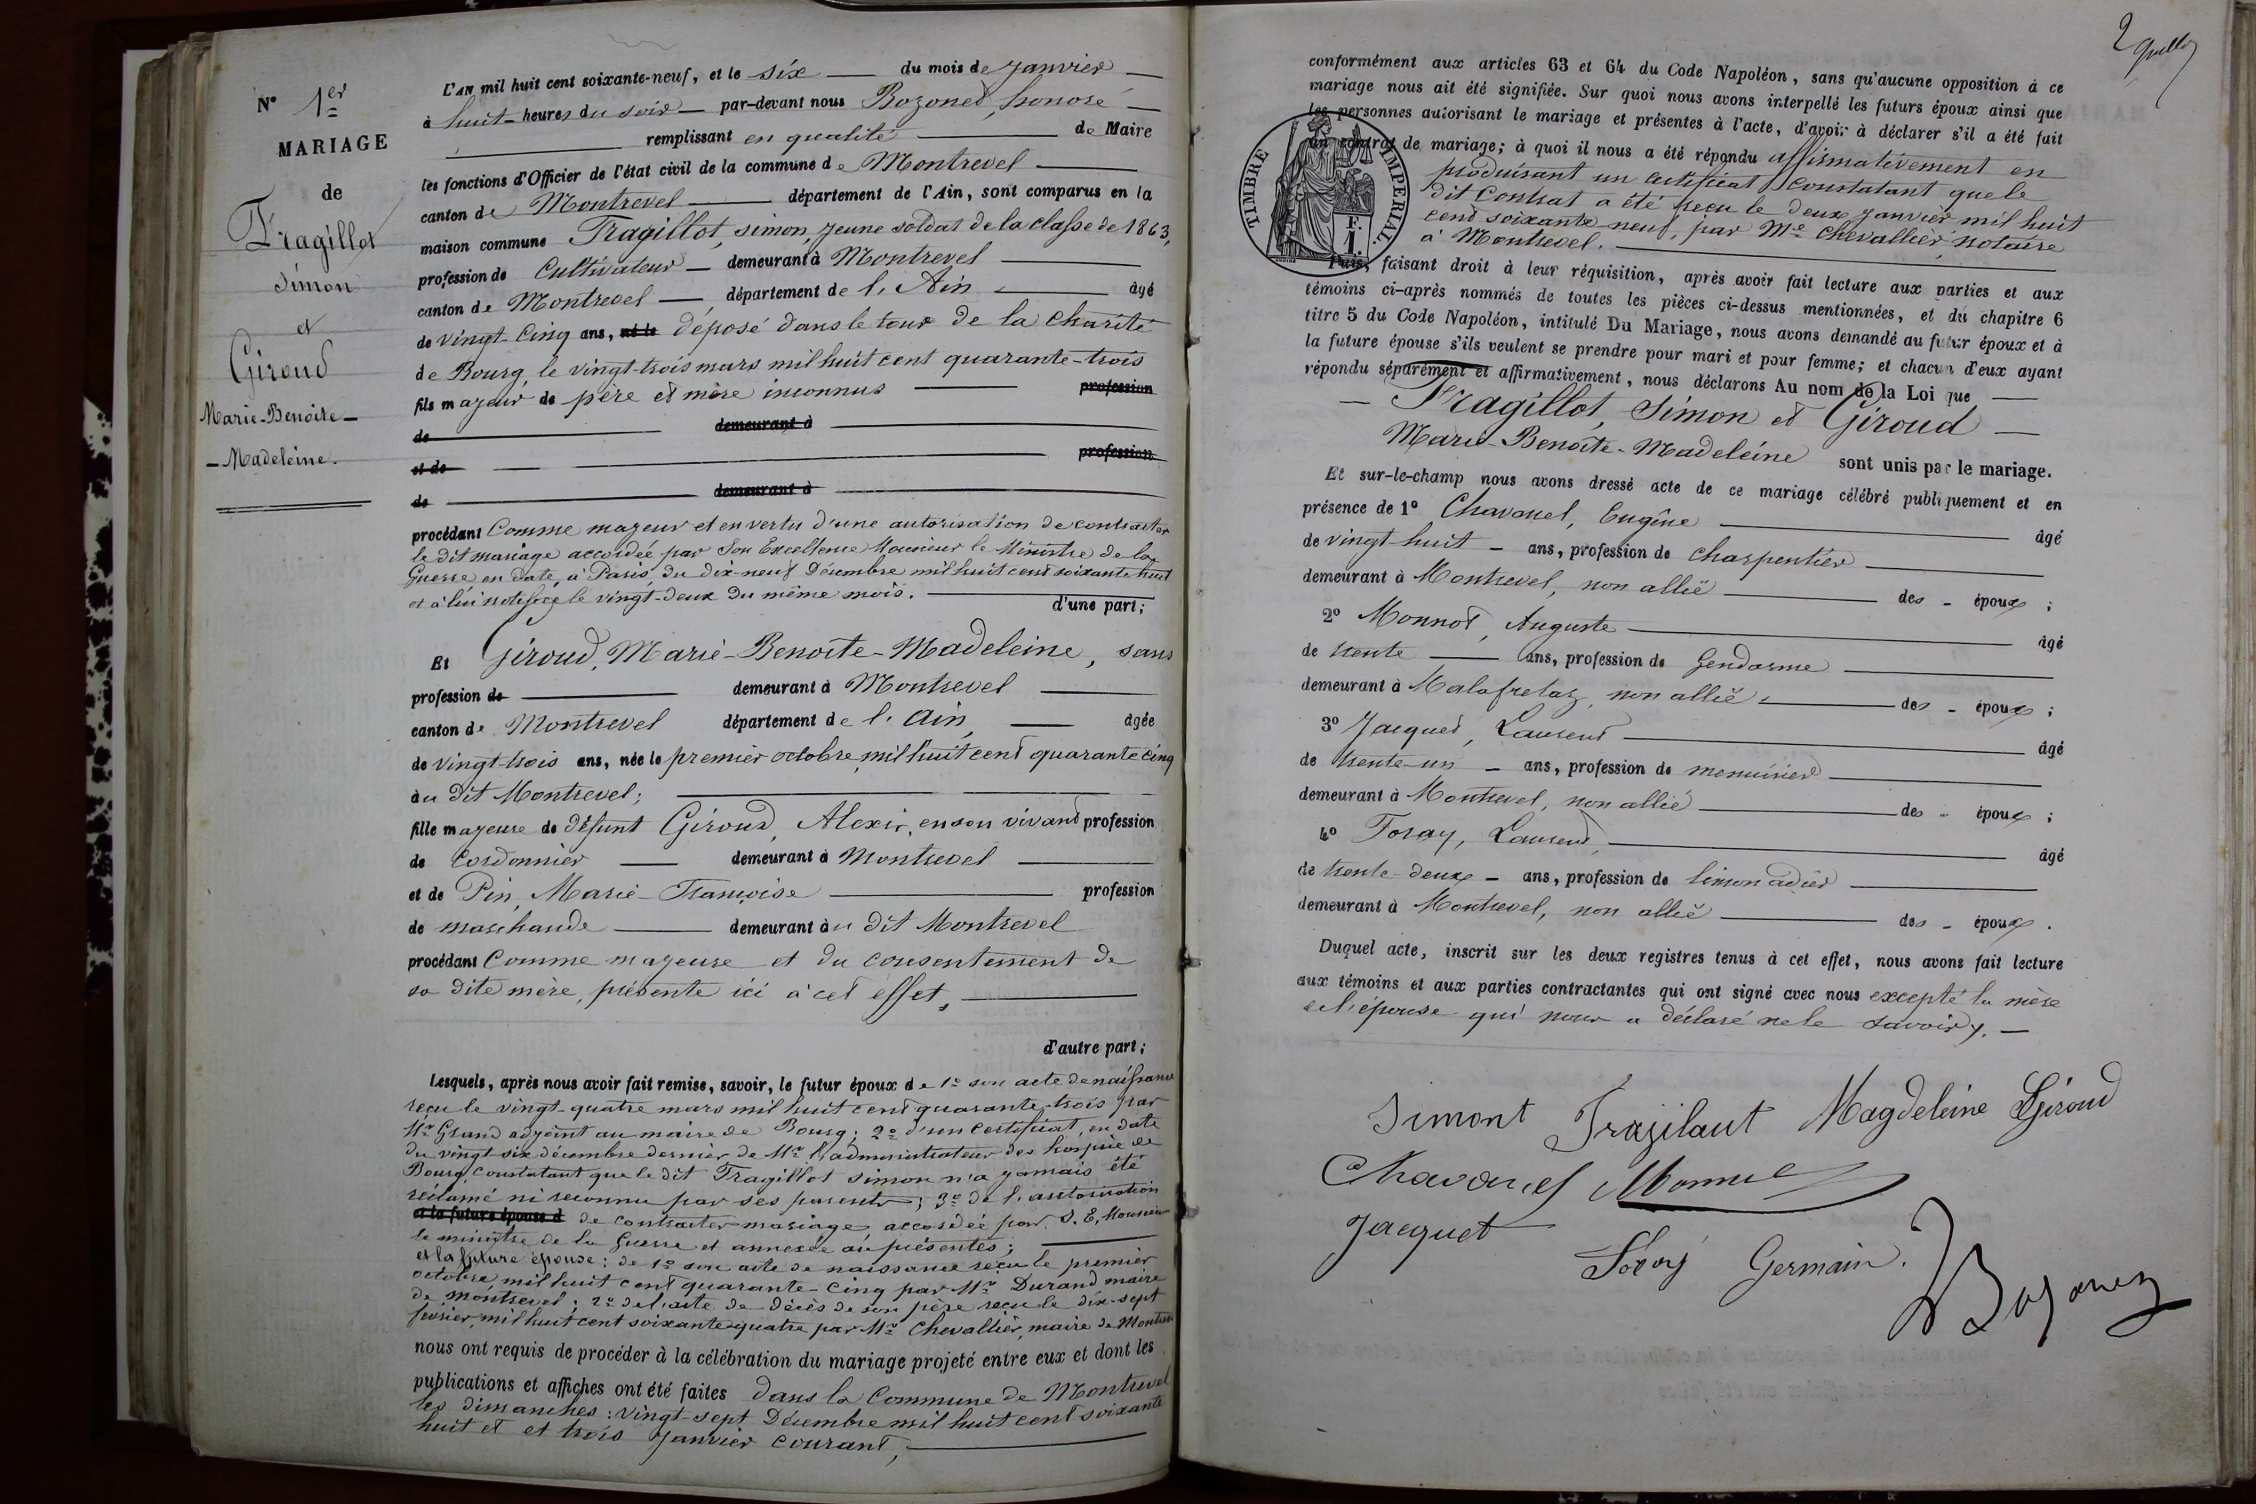 N° 1er
MARIAGE
de
Fragillot
Simon
et
Giroud
Marie-Benoite-
-Madeleine.
L'AN mil huit cent soixante-neuf, et le six du mois de janvier
à huit heures du soir par-devant nous Bozonet, honoré
remplissant en qualité de Maire
les fonctions d'Officier de l'état civil de la commune de Montrevel
canton de Montrevel département de l'Ain, sont comparus en la
maison commune Fragillot, simon, jeune soldat de la classe de 1863,
profession de Cultivateur demeurant à Montrevel
canton de Montrevel département de l'Ain âgé
de vingt-cinq ans, né le déposé dans le tour de la charité
de Bourg, le vingt-trois mars mil huit cent quarante-trois
fils majeur de père et mère inconnus profession
de demeurant à
et de profession
de demeurant à
procédant Comme majeur et en vertu d'une autorisation de contracter
le dit mariage accordée par Son Excellence Monsieur le Ministre de la
Guerre en date, à Paris, du dix-neuf Décembre mil huit cent soixante huit
et à lui notifiée le vingt-deux du même mois. d'une part;
Et Giroud, Marie-Benoite-Madeleine, sans
profession de demeurant à Montrevel
canton de Montrevel département de l'Ain, âgée
de vingt-trois ans, née le premier octobre mil huit cent quarante cinq
au dit Montrevel;
fille majeure de défunt Giroud, Alexis, en son vivant profession
de Cordonnier demeurant à Montrevel
et de Pin, Marie-Françoise profession
de marchande demeurant au dit Montrevel
procédant Comme majeure et du consentement de
sa dite mère, présente ici à cet effet,
d'autre part;
Lesquels, après nous avoir fait remise, savoir, le futur époux de 1° son acte de naissance
reçu le vingt-quatre mars mil huit cent quarante-trois par
Mr Grand adjoint au maire de Bourg; 2° d'un certificat, en date
du vingt-six décembre dernier de Mr l'administrateur des hospice de
Bourg, constatant que le dit Fragillot simon n'a jamais été
réclamé ni reconnu par ses parents; 3° de l'autorisation
et la future épouse d de contracter mariage accordée par S. E. Monsieur
le ministre de la Guerre et annexée au présentes;
et la future épouse: de 1° son acte de naissance reçu le premier
octobre mil huit cent quarante-cinq par Mr Durand maire
de Montrevel; 2° de l'acte de décès de son père reçu le dix-sept
février, mil huit cent soixante quatre par Mr Chevallier, maire de Montrevel
nous ont requis de procéder à la célébration du mariage projeté entre eux et dont les
publications et affiches ont été faites dans la Commune de Montrevel
les dimanches: vingt-sept Décembre mil huit cent soixante
huit et et trois janvier courant,
2
conformément aux articles 63 et 64 du Code Napoléon, sans qu'aucune opposition à ce
mariage nous ait été signifiée. Sur quoi nous avons interpellé les futurs époux ainsi que
les personnes autorisant le mariage et présentes à l'acte, d'avoir à déclarer s'il a été fait
un contrat de mariage; à quoi il nous a été répondu affirmativement en
produisant un certificat constatant que le
dit Contrat a été reçu le deux janvier mil huit
cent soixante neuf, par Me Chevallier, notaire
à Montrevel.
TIMBRE IMPERIAL.
F.
1.
Puis, faisant droit à leur réquisition, après avoir fait lecture aux parties et aux
témoins ci-après nommés de toutes les pièces ci-dessus mentionnées, et du chapitre 6
titre 5 du Code Napoléon, intitulé Du Mariage, nous avons demandé au futur époux et à
la future épouse s'ils veulent se prendre pour mari et pour femme; et chacun d'eux ayant
répondu séparément et affirmativement, nous déclarons Au nom de la Loi que
Fragillot, Simon et Giroud
Marie-Benoite-Madeleine sont unis par le mariage.
Et sur-le-champ nous avons dressé acte de ce mariage célébré publiquement et en
présence de 1° Chavanel, Eugène âgé
de vingt-huit ans, profession de charpentier
demeurant à Montrevel, non allié des époux;
2° Monnot, Auguste âgé
de trente ans, profession de Gendarme
demeurant à Malafretaz, non allié des époux;
3° Jacquet, Laurent âgé
de trente-un ans, profession de menuisier
demeurant à Montrevel, non allié des époux;
4° Foray, Laurent, âgé
de trente-deux ans, profession de limonadier
demeurant à Montrevel, non allié des époux.
Duquel acte, inscrit sur les deux registres tenus à cet effet, nous avons fait lecture
aux témoins et aux parties contractantes qui ont signé avec nous excepté la mère
de l'épouse qui nous a déclaré ne le savoir.
Simont Fragilaut Magdeleine Giroud
Chavanel Monnot
Jacquet
Germain.
Bozonet